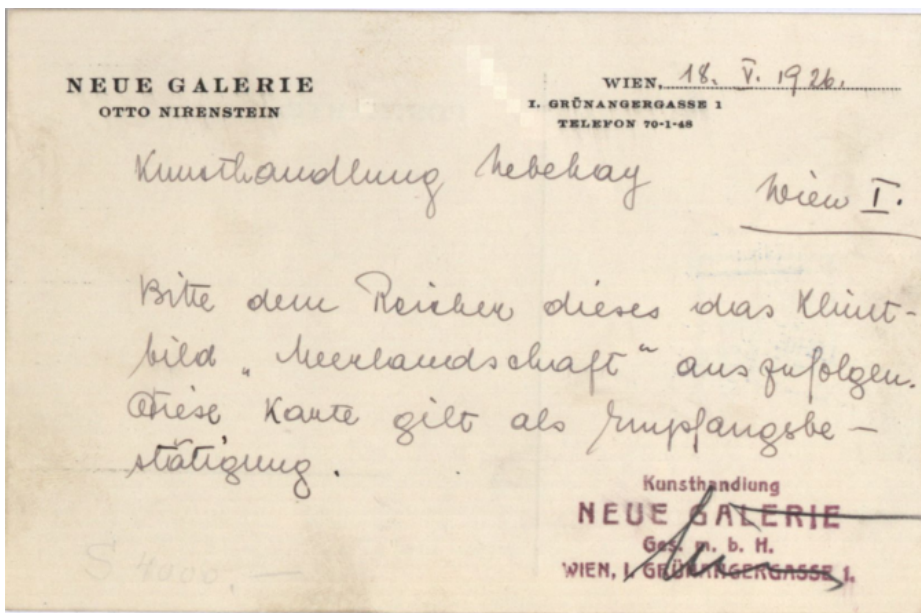 NEUE GALERIE
OTTO NIRENSTEIN
WIEN, 18. V. 1926.
I. GRÜNANGERGASSE 1
TELEFON 70-1-48
Kunsthandlung Nebehay
Wien I.
Bitte dem Reicher dieses das Klimt-
bild „Meerlandschaft“ auszufolgen.
Diese Karte gilt als Empfangsbe-
stätigung.
Kunsthandlung
NEUE GALERIE
Ges. m. b. H.
WIEN, I. GRÜNANGERGASSE 1.
S 4000.—